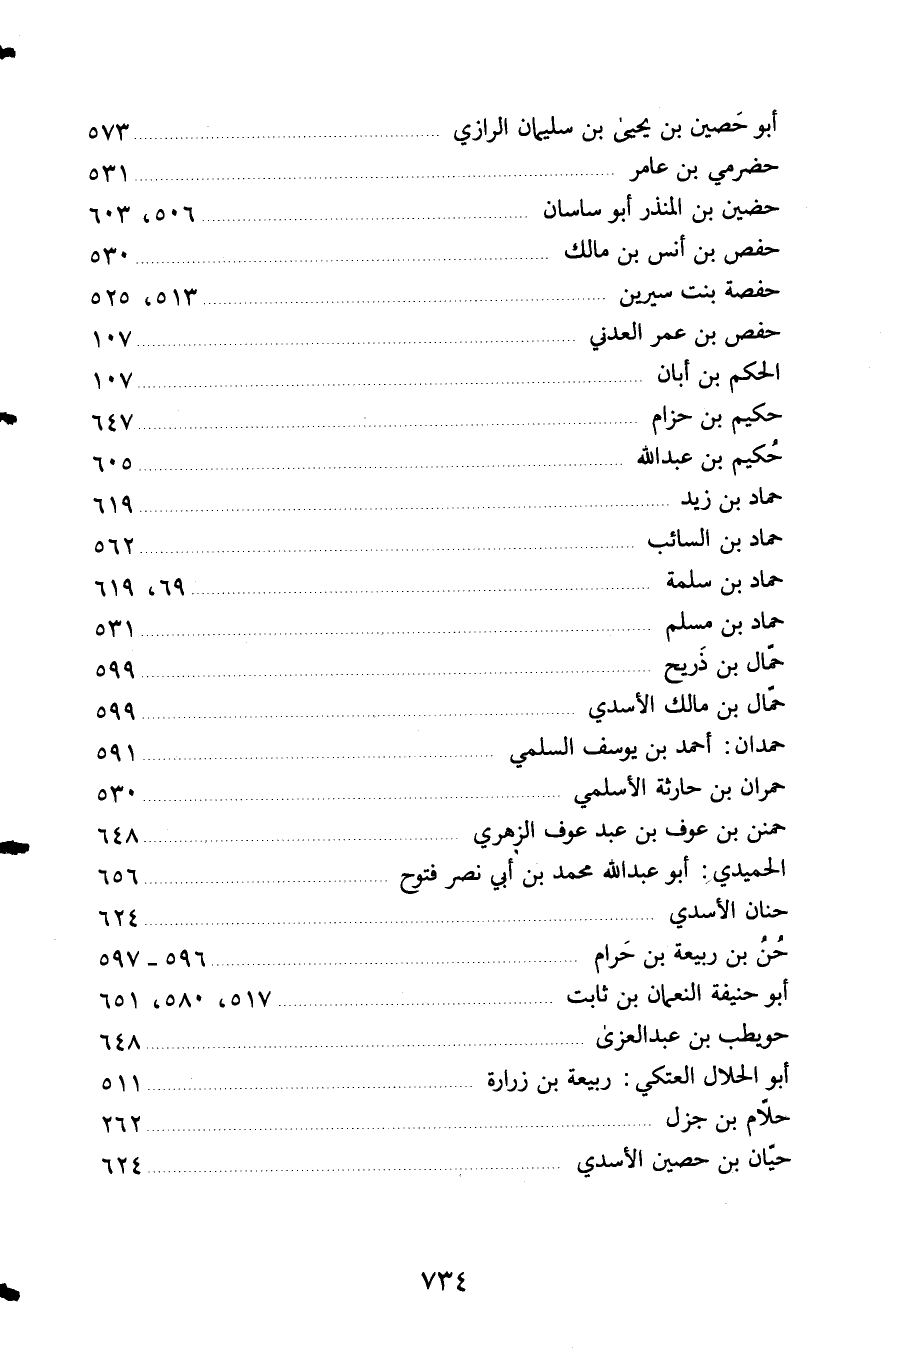 أبو حَصين بن يحيىٰ بن سليمان الرازي ........ ٥٧٣
حضرمي بن عامر ........ ٥٣١
حضين بن المنذر أبو ساسان ........ ٥٠٦، ٦٠٣
حفص بن أنس بن مالك ........ ٥٣٠
حفصة بنت سيرين ........ ٥١٣، ٥٢٥
حفص بن عمر العدني ........ ١٠٧
الحكم بن أبان ........ ١٠٧
حكيم بن حزام ........ ٦٤٧
حُكيم بن عبدالله ........ ٦٠٥
حماد بن زيد ........ ٦١٩
حماد بن السائب ........ ٥٦٢
حماد بن سلمة ........ ٦٩، ٦١٩
حماد بن مسلم ........ ٥٣١
حمّال بن ذَريح ........ ٥٩٩
حمّال بن مالك الأسدي ........ ٥٩٩
حمدان: أحمد بن يوسف السلمي ........ ٥٩١
حمران بن حارثة الأسلمي ........ ٥٣٠
حمنن بن عوف بن عبد عوف الزهري ........ ٦٤٨
الحميدي: أبو عبدالله محمد بن أبي نصر فتوح ........ ٦٥٦
حنان الأسدي ........ ٦٢٤
حُنُّ بن ربيعة بن حَرام ........ ٥٩٦ ـ ٥٩٧
أبو حنيفة النعمان بن ثابت ........ ٥١٧، ٥٨٠، ٦٥١
حويطب بن عبدالعزىٰ ........ ٦٤٨
أبو الحلال العتكي: ربيعة بن زرارة ........ ٥١١
حلاّم بن جزل ........ ٢٦٢
حيّان بن حصين الأسدي ........ ٦٢٤
٧٣٤